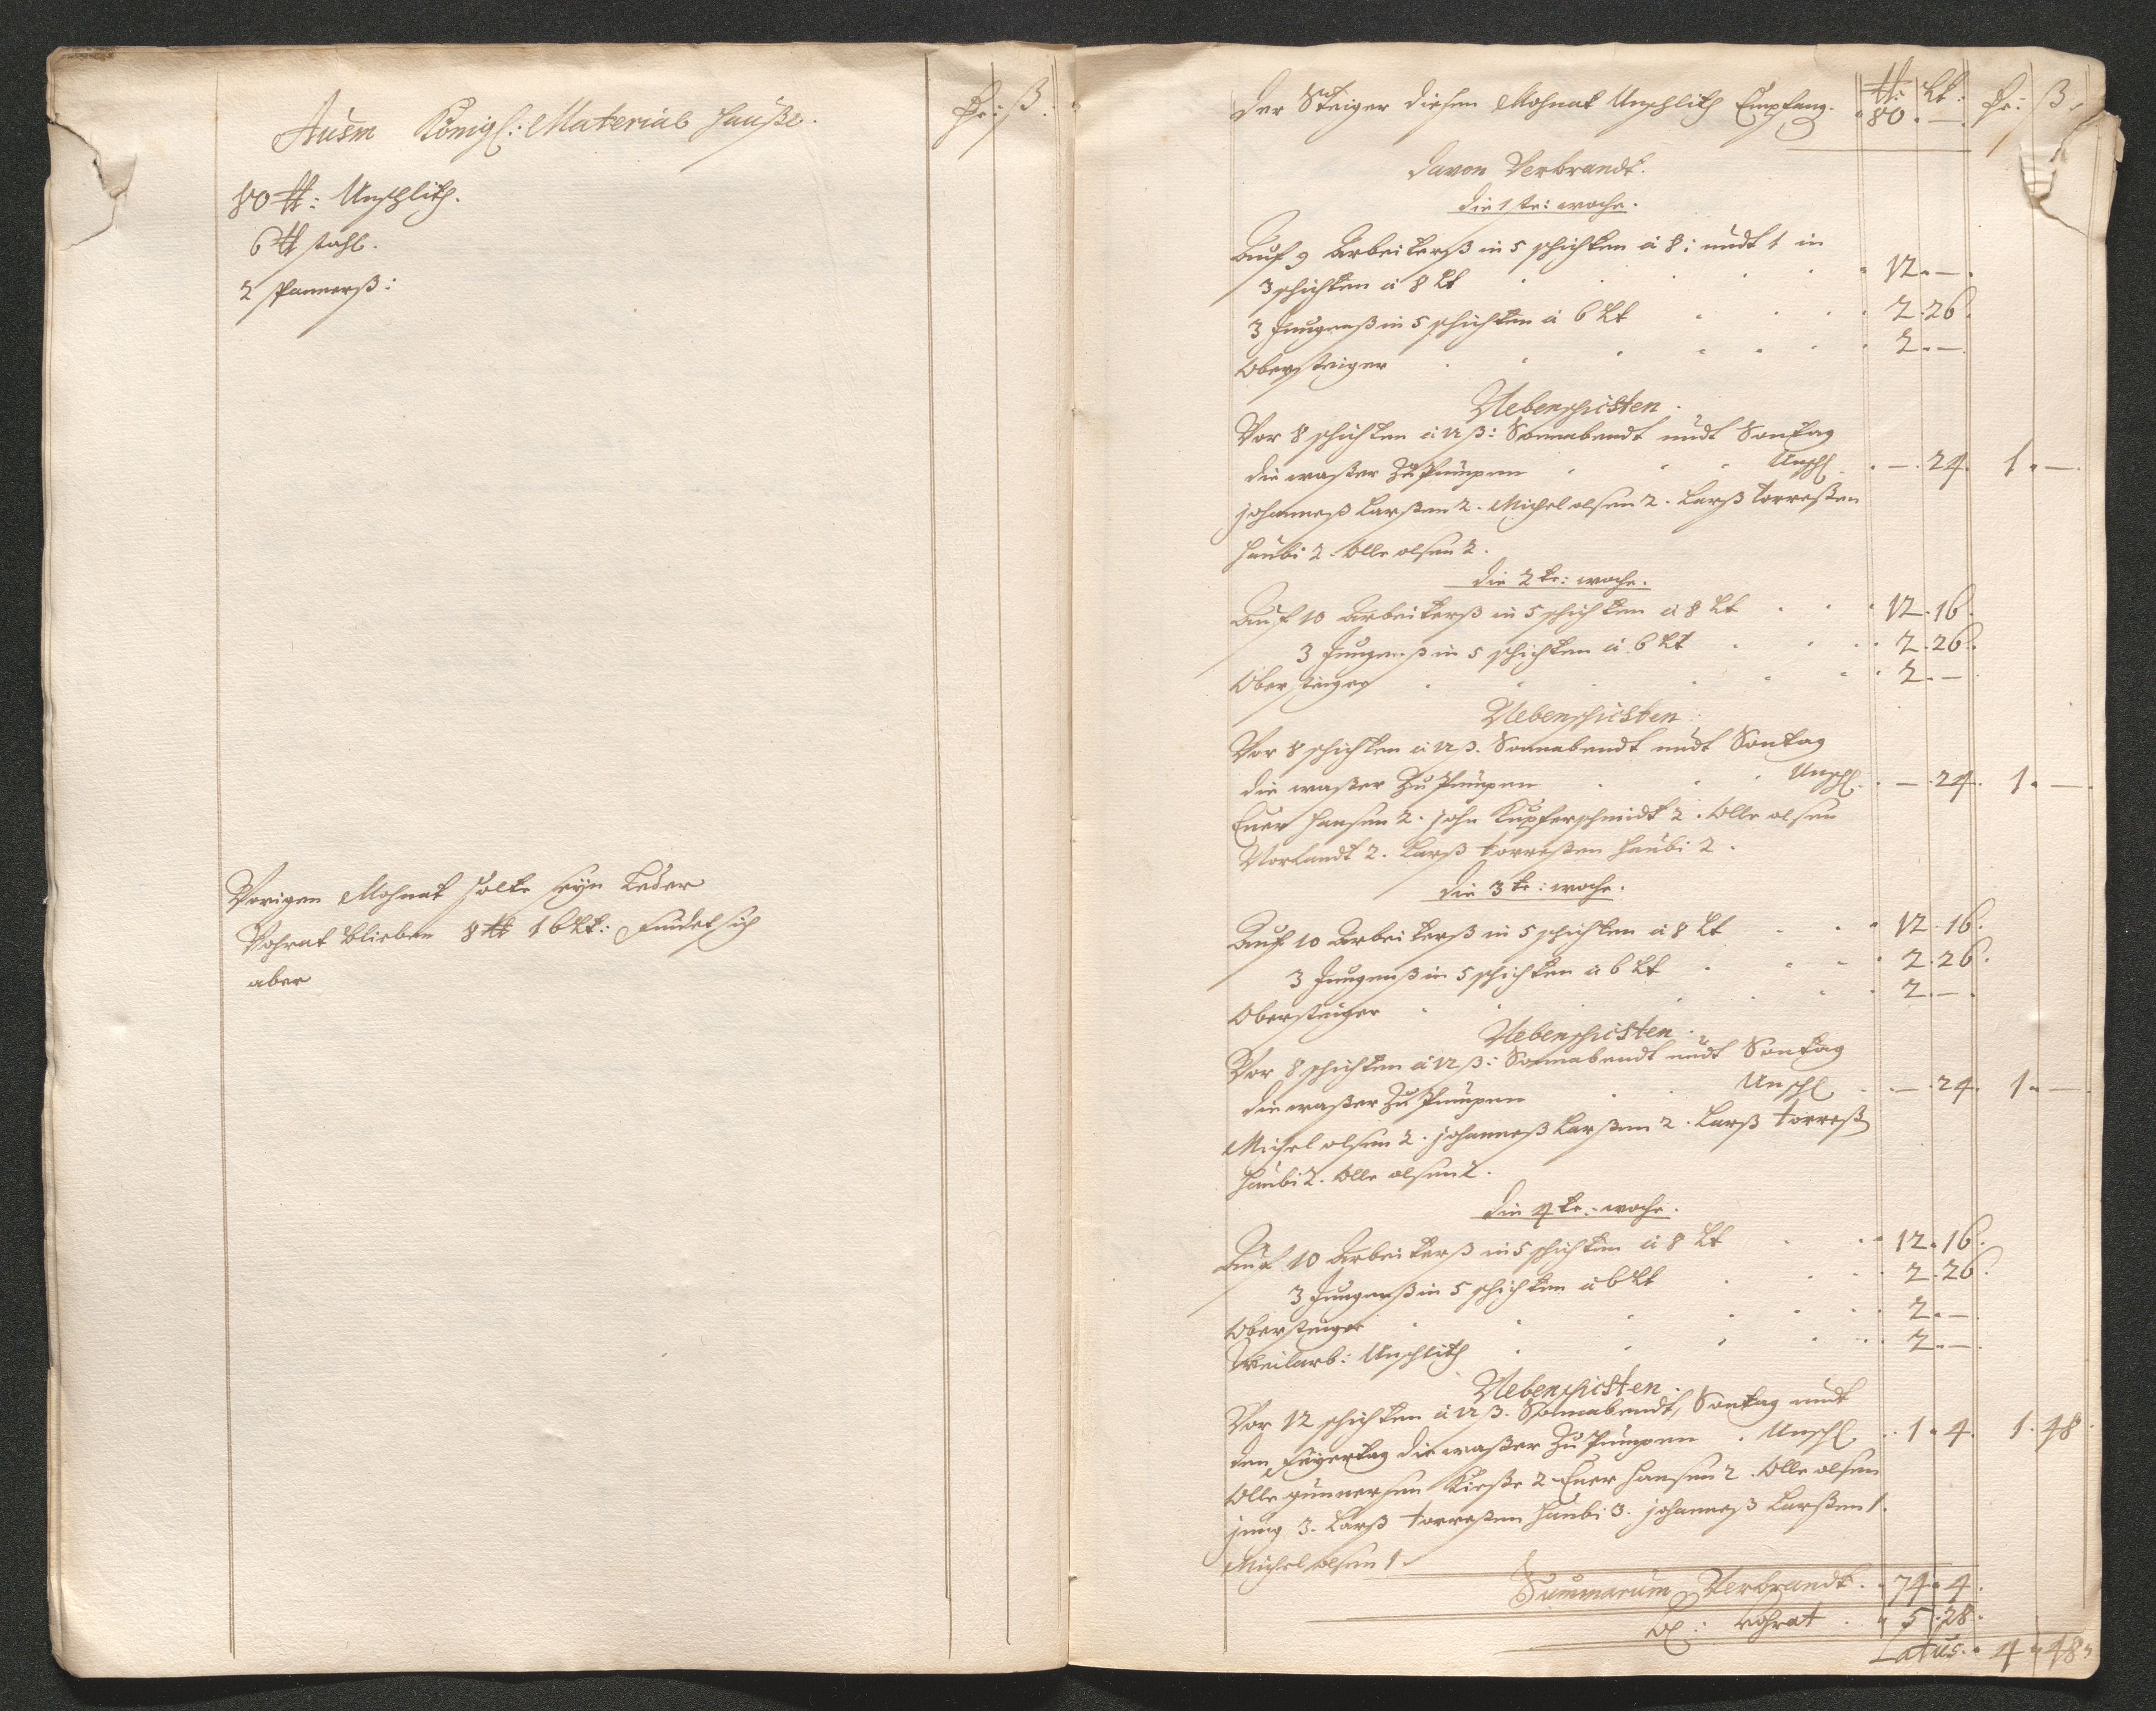 Ausm Königl: Material Hauße.
Rr: ß.
80 ℔: Unschlith.
6 ℔ stahl.
2 spannerß:
Vorigen Mohnat solte seyn Leder
Vohrat blieben 8 ℔ 16 Lt: findet sich
aber
Der Steiger diesen Mohnat Unschlith Empfang. ℔: Lt: Rr: ß.
80. —.
Davon Verbrandt.
die 1 te: woche.
Auf 9 Arbeiterß in 5 schichten à 8: undt 1 in
3 schichten à 8 Lt 12. —.
3 Jungenß in 5 schichten à 6 Lt 2. 26.
Obersteiger 2. —.
Nebenschichten.
Vor 8 schichten à 12 ß: Sonnabendt undt Sontag
die waßer Zu Pumpen Unschl. — . 24. 1. —.
johanneß Larßen 2. Michel olsen 2. Larß torreßen
Haubi 2. Olle olsen 2.
die 2 te: woche.
Auf 10 Arbeiterß in 5 schichten à 8 Lt 12. 16.
3 Jungenß in 5 schichten à 6 Lt 2. 26.
Obersteiger 2. —
Nebenschichten
Vor 8 schichten à 12 ß. Sonnabendt undt Sontag
die waßer Zu Pumpen Unschl. — . 24. 1. —.
Ener Hansen 2. john Kupferschmidt 2. Olle olsen
Norlandt 2. Larß torreßen Haubi 2.
die 3 te: woche.
Auf 10 Arbeiterß in 5 schichten à 8 Lt 12. 16.
3 Jungenß in 5 schichten à 6 Lt 2. 26.
Obersteiger 2. —.
Nebenschichten.
Vor 8 schichten à 12 ß: Sonnabendt undt Sontag
die waßer Zu Pumpen Unschl — . 24. 1. —.
Michel olsen 2. johanneß Larßen 2. Larß torreß
Haubi 2. Olle olsen 2.
die 4 te: woche.
Auf 10 Arbeiterß in 5 schichten à 8 Lt 12. 16.
3 Jungenß in 5 schichten à 6 Lt 2. 26.
Obersteiger 2. —
Weilarb: Unschlith 2. —.
Nebenschichten.
Vor 12 schichten à 12 ß. Sonnabendt, Sontag undt
den Feyertag die waßer Zu Pumpen. Unschl 1. 4. 1. 48.
Olle gunnersen Kieße 2 Ener Hansen 2. Olle olsen
jung 3. Larß torreßen Haubi 3. johanneß Larßen 1.
Michel olsen 1.
Summarum Verbrandt. 74. 4.
Vohrat. 5. 28.
Latus. 4. 48.